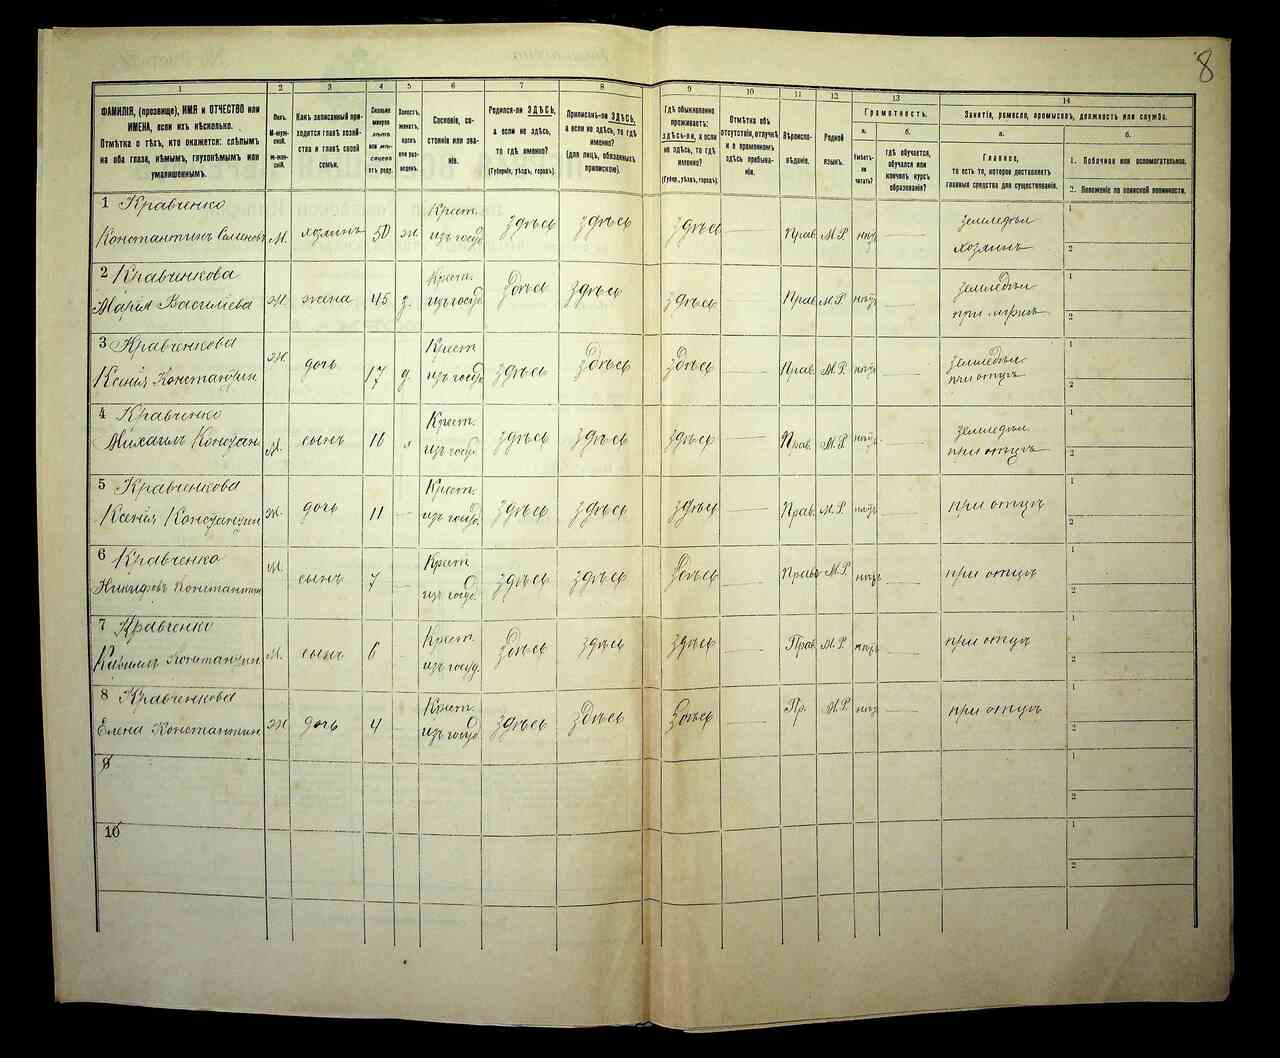 8
1 2 3 4 5 6 7 8 9 10 11 12 13 14
ФАМИЛІЯ, (прозвище), ИМЯ и ОТЧЕСТВО или
ИМЕНА, если ихъ нѣсколько.
Отмѣтка о тѣхъ, кто окажется: слѣпымъ
на оба глаза, нѣмымъ, глухонѣмымъ или
умалишеннымъ.
Полъ.
М-муж-
ской.
Ж-жен-
скій.
Какъ записанный при-
ходится главѣ хозяй-
ства и главѣ своей
семьи.
Сколько
минуло
лѣтъ
или мѣ-
сяцевъ
отъ роду.
Холостъ,
женатъ,
вдовъ
или раз-
веденъ.
Сословіе, со-
стояніе или зва-
ніе.
Родился-ли ЗДѢСЬ,
а если не здѣсь,
то гдѣ именно?
(Губернія, уѣздъ, городъ).
Приписанъ-ли ЗДѢСЬ,
а если не здѣсь, то гдѣ
именно?
(для лицъ, обязанныхъ
припискою).
Гдѣ обыкновенно
проживаетъ:
ЗДѢСЬ-ли, а если
не здѣсь, то гдѣ
именно?
(Губер., уѣздъ, городъ).
Отмѣтка объ
отсутствіи, отлучкѣ
и о временномъ
здѣсь пребыва-
ніи.
Вѣроиспо-
вѣданіе.
Родной
языкъ.
Грамотность.
а.
Умѣетъ-
ли
читать?
б.
гдѣ обучается,
обучался или
кончилъ курсъ
образованія?
Занятіе, ремесло, промыселъ, должность или служба.
а.
Главное,
то есть то, которое доставляетъ
главныя средства для существованія.
б.
1. Побочное или вспомогательное.
2. Положеніе по воинской повинности.
1 Кравченко хозяинъ 50 ж Крест. здѣсь здѣсь здѣсь Прав. М.Р. земледѣл 1
Константинъ М. изъ госуд. хозяинъ 2
2 Кравченкова Крест. здѣсь здѣсь здѣсь земледѣл 1
Марія Васильева Ж. жена 45 з. изъ госуд. Прав. М.Р. 2
3 Кравченкова Ж. дочь Крест здѣсь здѣсь земледѣл. 1
Ксенія Константин 17 д. изъ госуд. здѣсь Прав. М.Р. при отцѣ 2
4 Кравченко Крест. земледѣл. 1
Михаилъ Констан М. сынъ изъ госуд. здѣсь здѣсь здѣсь Прав. М.Р. при отцѣ 2
5 Кравченкова Крест. 1
Ксенія Константин ж. дочь 11 изъ госуд. здѣсь здѣсь здѣсь Прав. М.Р. при отцѣ 2
6 Кравченко М. Крест 1
Никифоръ Константин сынъ 7 изъ госуд. здѣсь здѣсь здѣсь Прав М.Р. при отцѣ 2
7 Кравченко Крест 1
Константин М. сынъ 6 изъ госуд. здѣсь здѣсь здѣсь Прав М.Р. при отцѣ 2
8 Кравченкова Крест. 1
Елена Константин Ж дочь 4 изъ госуд. здѣсь здѣсь здѣсь Пр. М.Р. при отцѣ 2
9 1
2
10 1
2